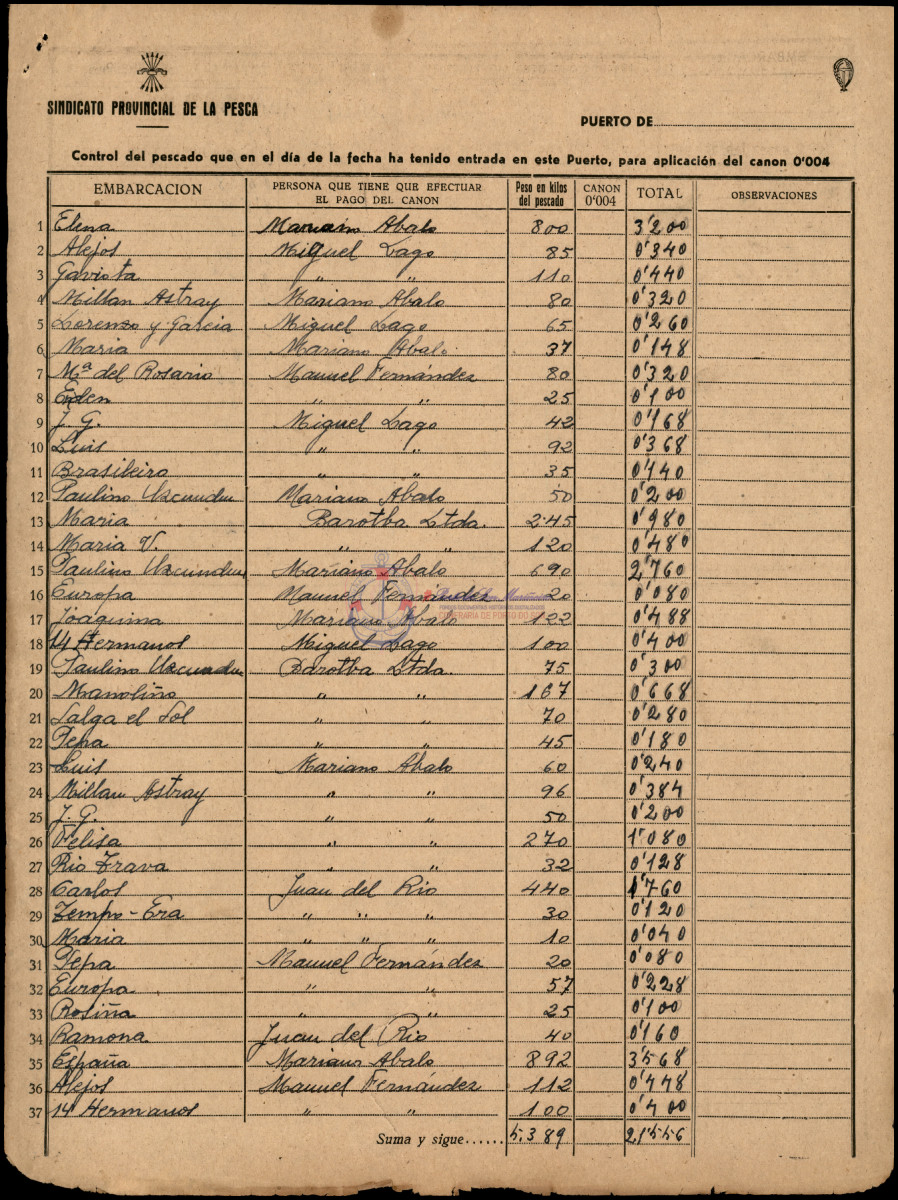 SINDICATO PROVINCIAL DE LA PESCA
PUERTO DE
Control del pescado que en el día de la fecha ha tenido entrada en este Puerto, para aplicación del canon 0'004
EMBARCACION PERSONA QUE TIENE QUE EFECTUAR EL PAGO DEL CANON Peso en kilos del pescado CANON 0'004 TOTAL OBSERVACIONES
1 Elena Mariano Abalo 800 3'200
2 Alejos Miguel Lago 85 0'340
3 Gaviota " " 110 0'440
4 Millan Astray Mariano Abalo 80 0'320
5 Lorenzo y Garcia Miguel Lago 65 0'260
6 Maria Mariano Abalo 37 0'148
7 Mª del Rosario Manuel Fernández 80 0'320
8 Eden " " 25 0'100
9 J. G. Miguel Lago 42 0'168
10 Luis " " 92 0'368
11 Brasileiro " " 35 0'140
12 Paulino Uzcundun Mariano Abalo 50 0'200
13 Maria Barotba Ltda. 245 0'980
14 Maria V. " " 120 0'480
15 Paulino Uzcundun Mariano Abalo 690 2'760
16 Europa Manuel Fernández 20 0'080
17 Joaquina Mariano Abalo 122 0'488
18 14 Hermanos Miguel Lago 100 0'400
19 Paulino Uzcundun Barotba Ltda. 75 0'300
20 Manoliño " " 167 0'668
21 Salga el Sol " " 70 0'280
22 Pepa " " 45 0'180
23 Luis Mariano Abalo 60 0'240
24 Millan Astray " " 96 0'384
25 J. G. " " 50 0'200
26 Felisa " " 270 1'080
27 Rio Trava " " 32 0'128
28 Carlos Juan del Rio 440 1'760
29 Tempo-Era " " " 30 0'120
30 Maria " " " 10 0'040
31 Pepa Manuel Fernández 20 0'080
32 Europa " " 57 0'228
33 Rosiña " " 25 0'100
34 Ramona Juan del Rio 40 0'160
35 España Mariano Abalo 892 3'568
36 Alejos Manuel Fernández 112 0'448
37 14 Hermanos " " 100 0'400
Suma y sigue...... 5.389 21'556